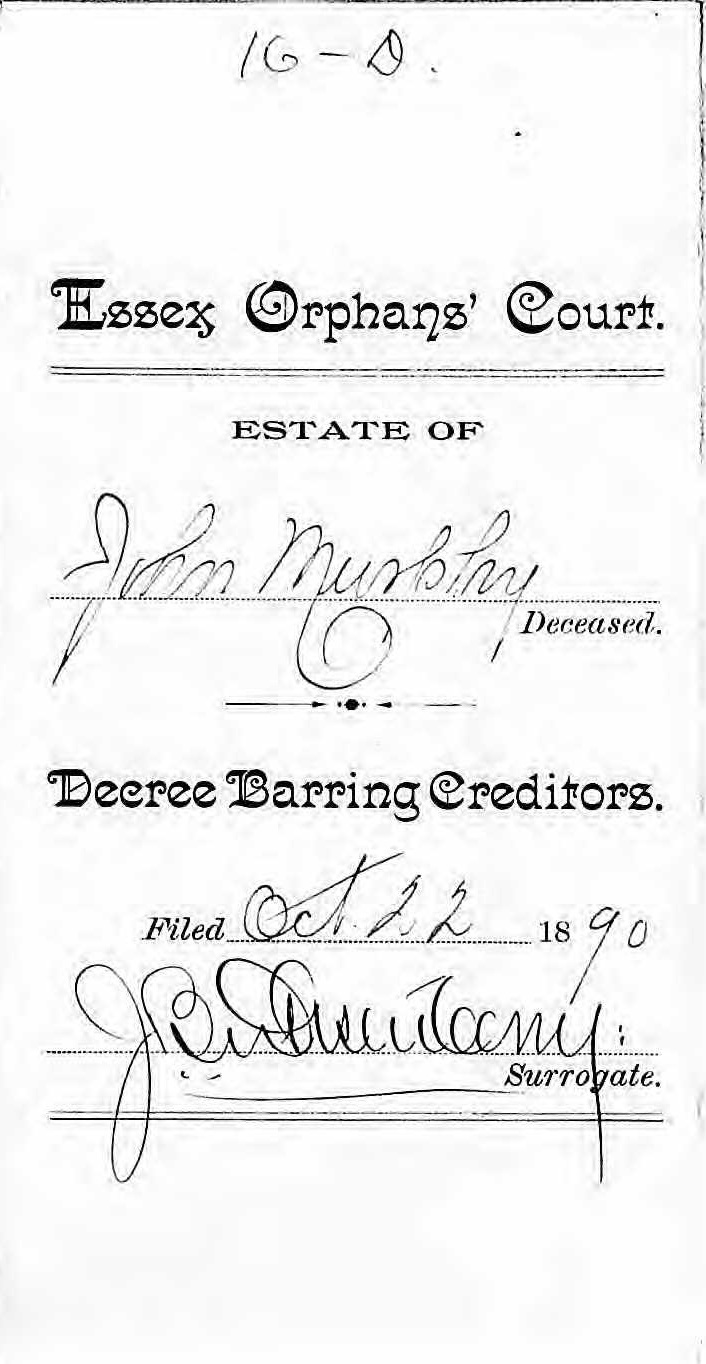 16 - D.
Essex Orphans' Court.
ESTATE OF
John Murphy
Deceased.
Decree Barring Creditors.
Filed Oct. 22 1890
Surrogate.